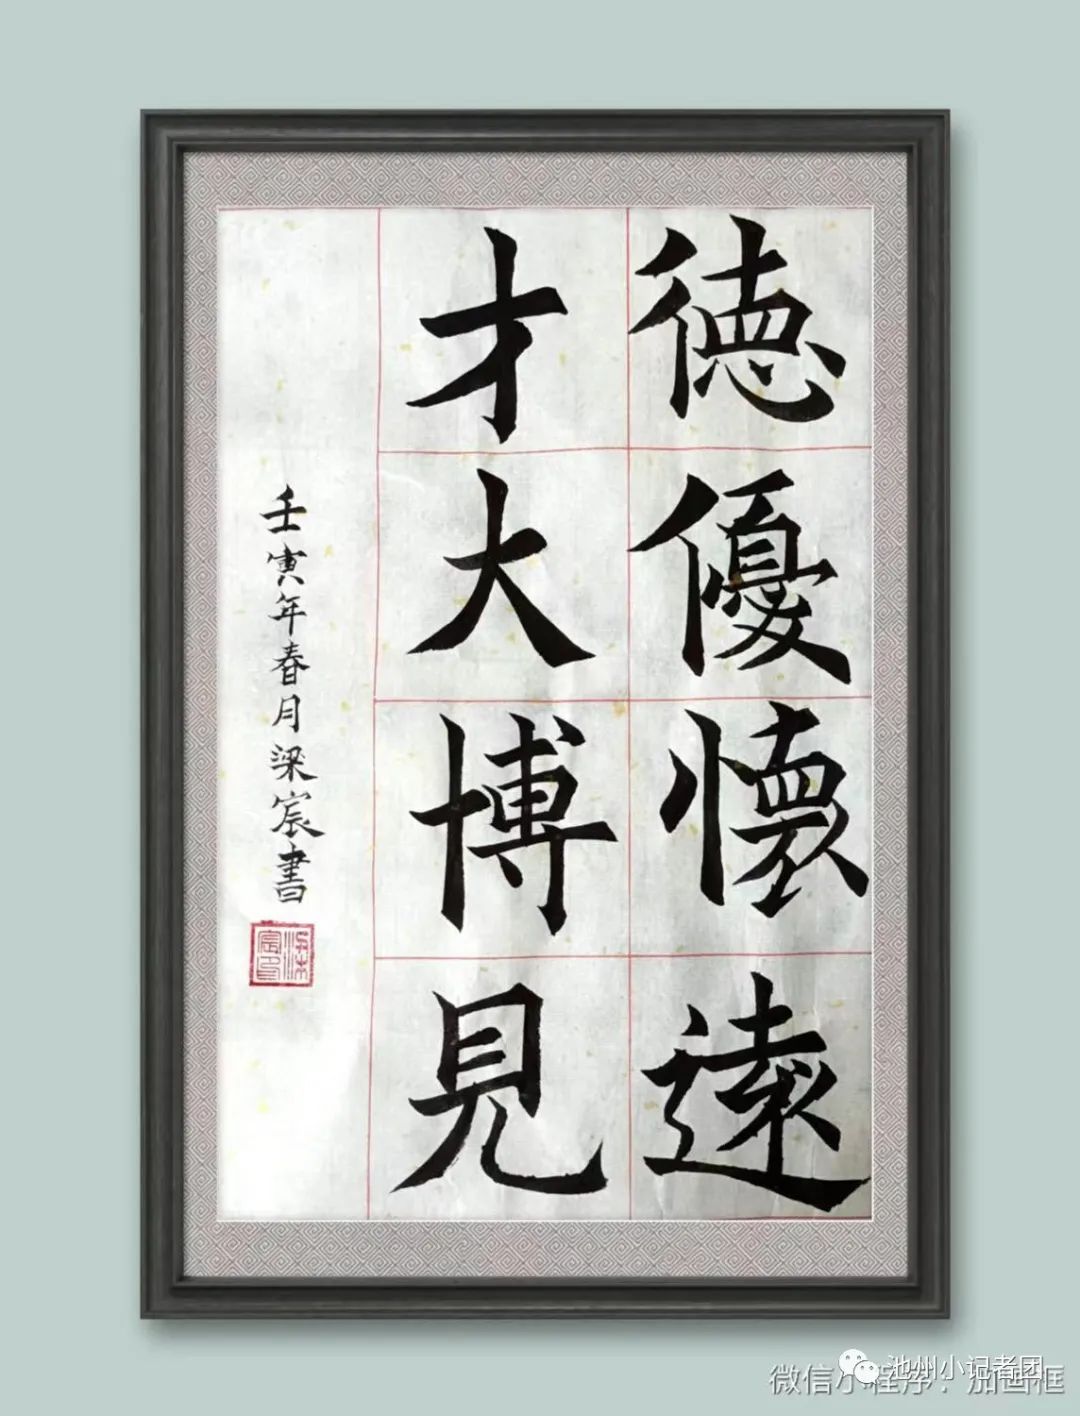 德優懷遠
才大博見
壬寅年春月梁宸書
梁宸印
池州小记者团
微信小程序：加画框